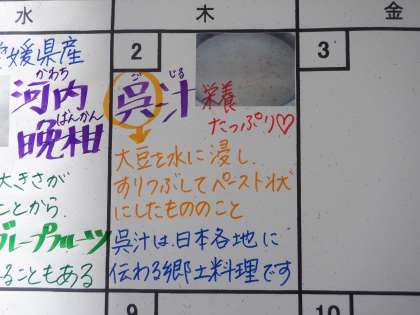 水
木
金
愛媛県産
かわち
河内
ばんかん
晩柑
大きさが
ことから
グレープフルーツ
ることもある
2
ご じる
呉汁
栄養
たっぷり♡
大豆を水に浸し、
すりつぶしてペースト状
にしたもののこと
呉汁は、日本各地に
伝わる郷土料理です
3
9
10